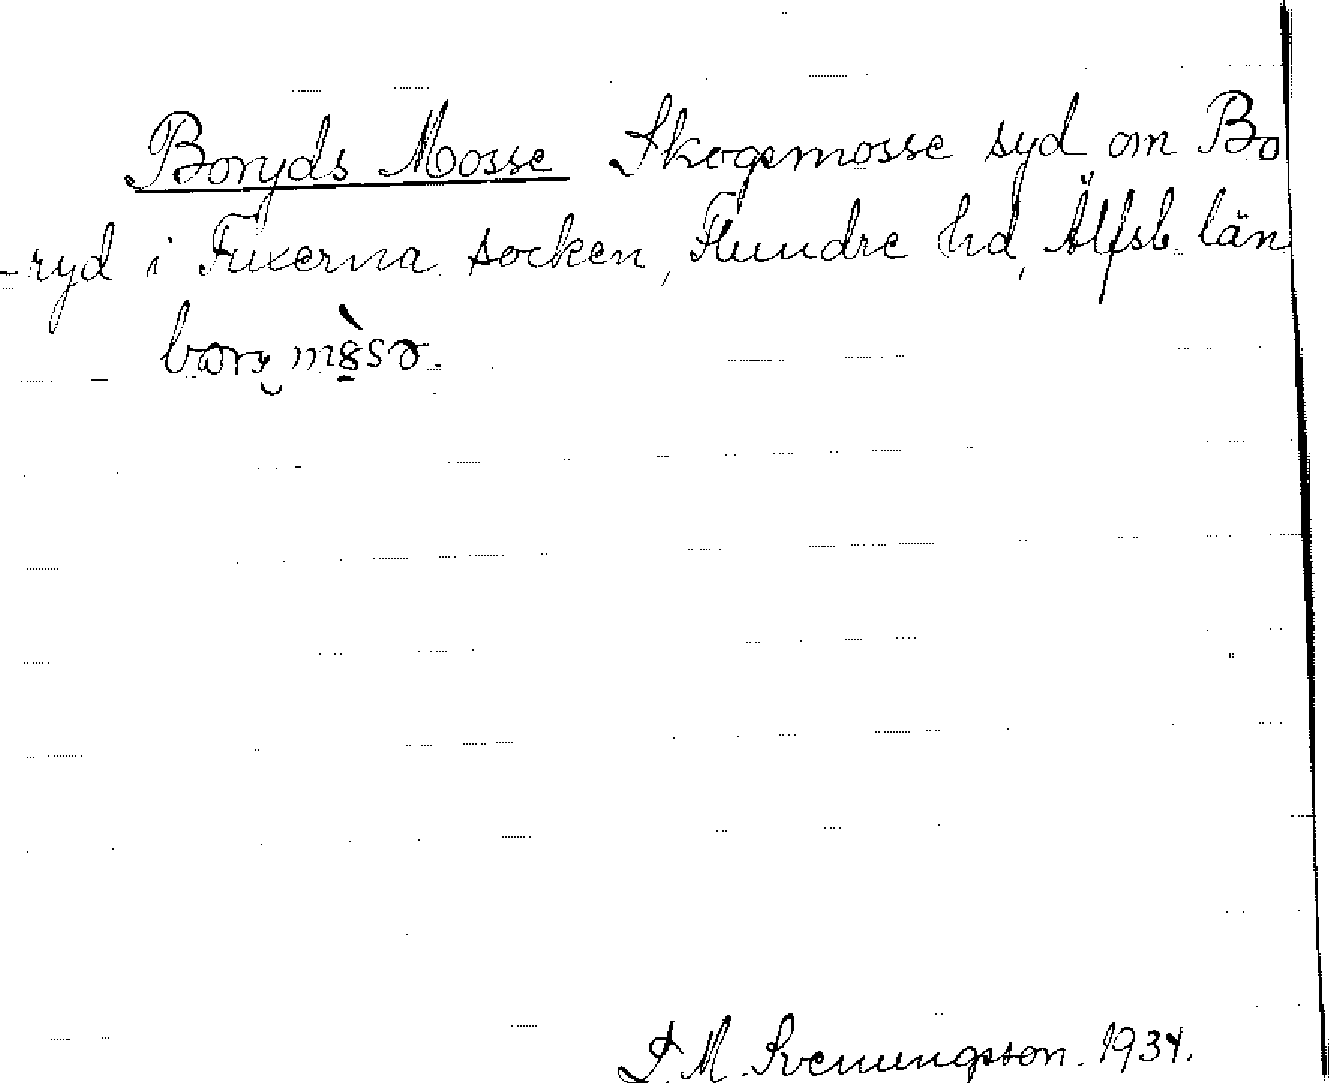 Boryds Mosse Skogsmosse syd om Bo
-ryd i Fuxerna socken, Flundre hd, Älfsb. län
S. M. Svenungsson. 1934.